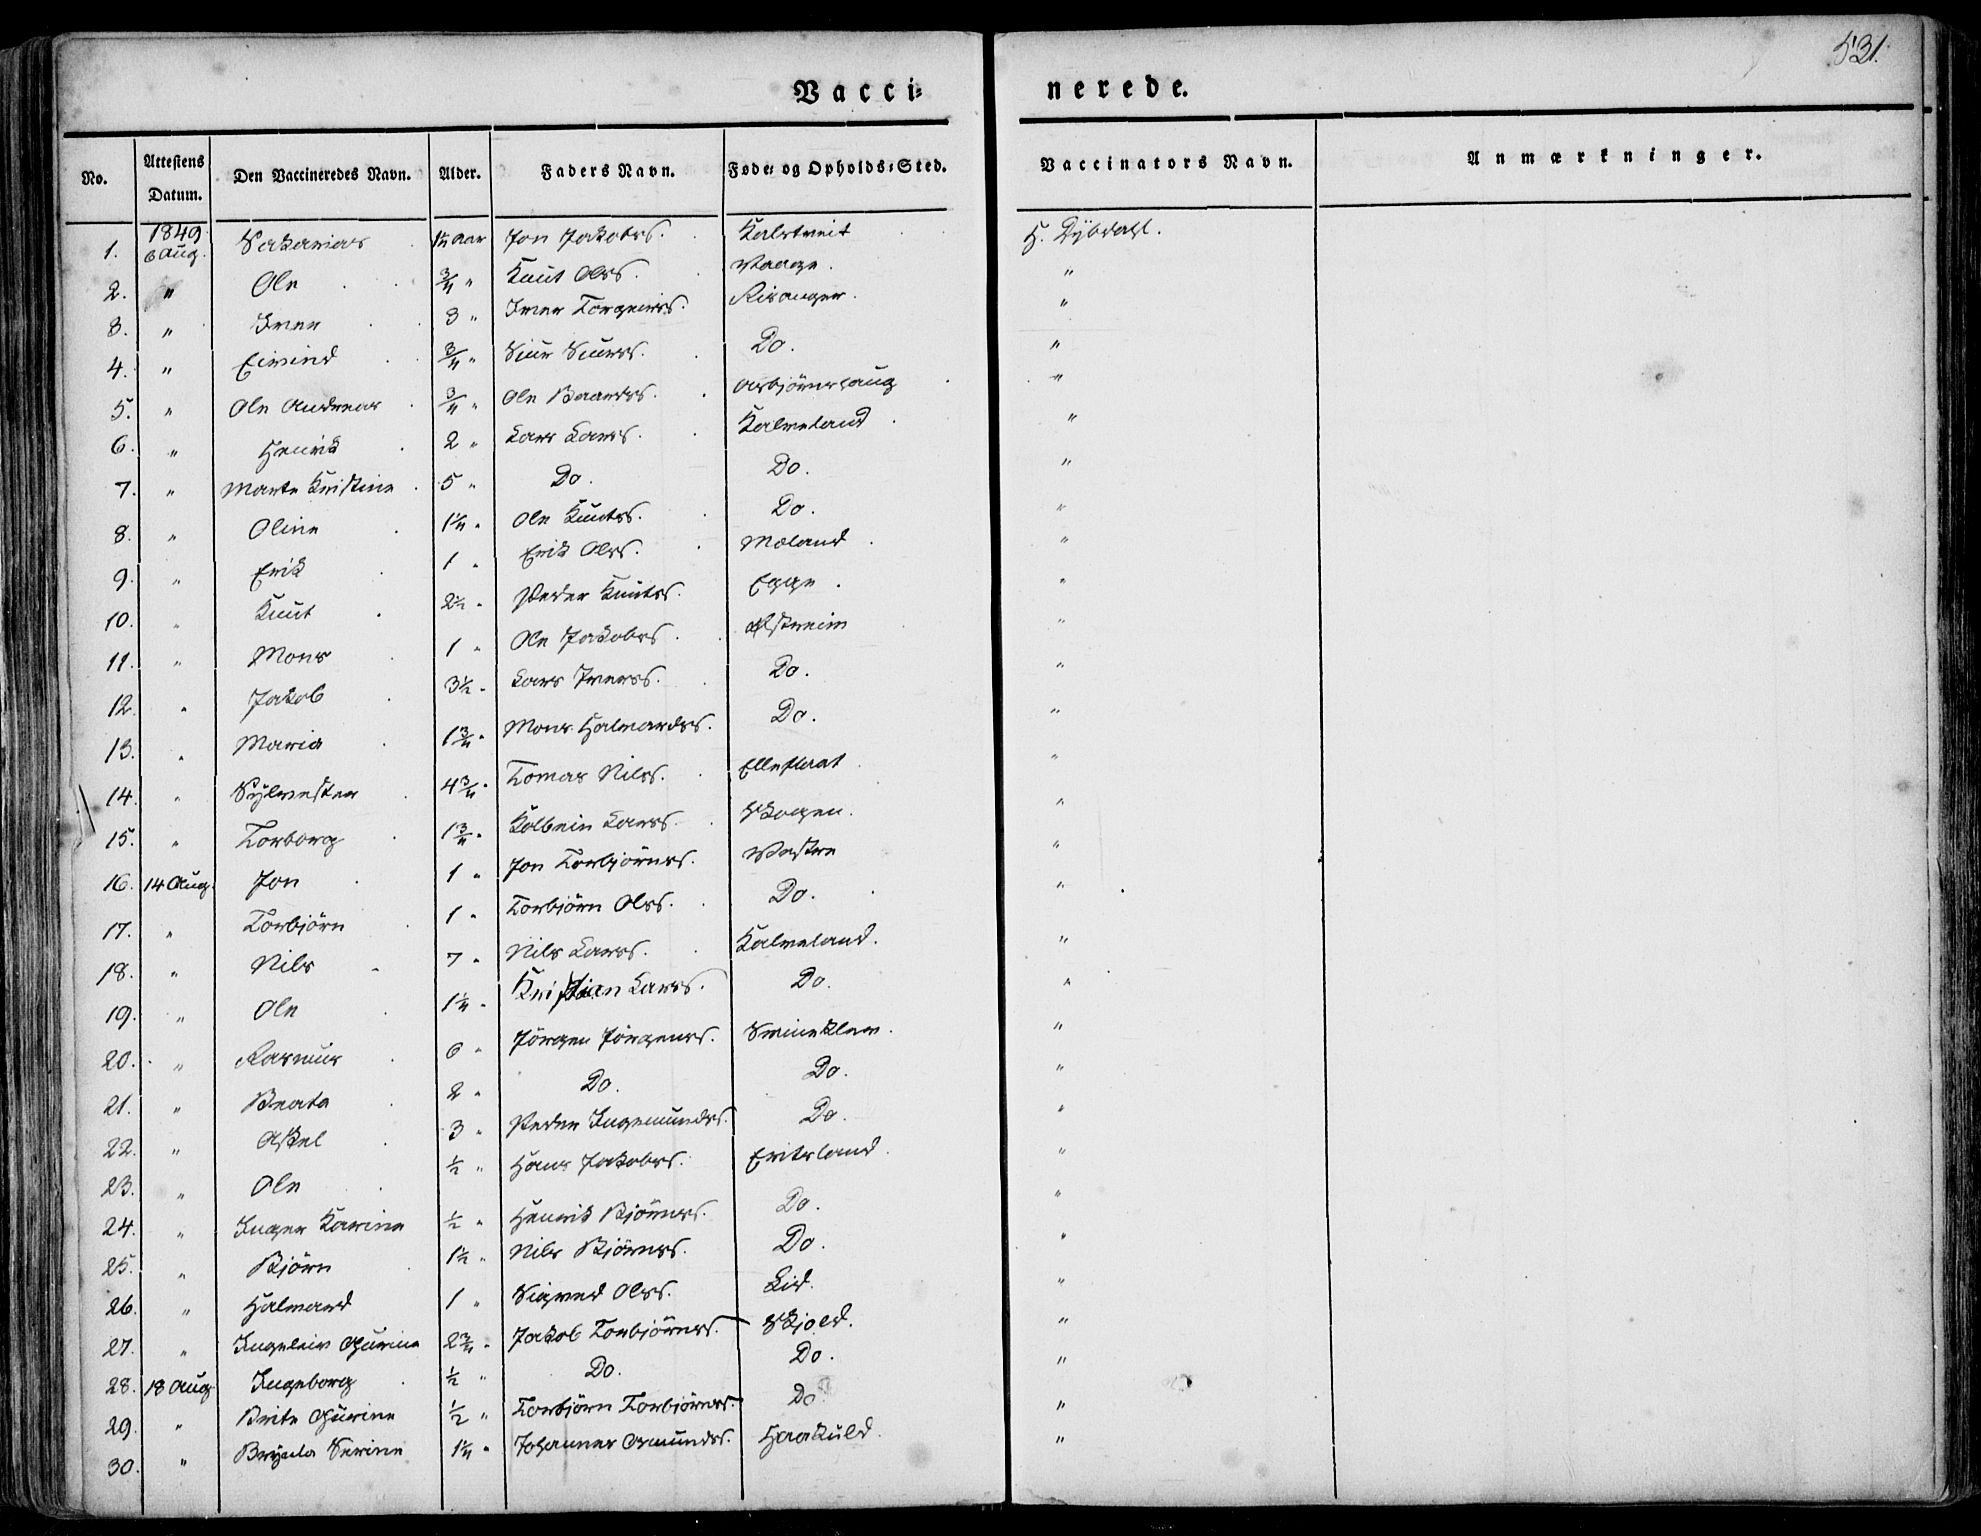 531.
Vacci=nerede.
No. Attestens Datum. Den Vaccineredes Navn. Alder. Faders Navn. Føde= og Opholds=Sted. Vaccinators Navn. Anmærkninger.
1. 1849 6 Aug. Sakarias 1½ Aar Jon Jakobss. Kalstveit H. Dÿbdahl.
2. " Ole ¾ " Knut Olss. Vaage. "
3. " Iver 3 " Iver Torgeirss. Risanger. "
4. " Eivind ¾ " Siur Siurss. Do. "
5. " Ole Andreas ¾ " Ole Baardss. Asbjörnshaug "
6. " Henrik 2 " Lars Larss. Kalveland "
7. " Marte Kristine 5 " Do. Do. "
8. " Oline 1¼ " Ole Knutss. Do. "
9. " Erik 1 " Erik Olss. Mæland "
10. " Knut 2½ " Peder Knutss. Egge. "
11. " Mons 1 " Ole Jakobss. Østreim "
12. " Jakob 3½ " Lars Iverss. Do. "
13. " Maria 1¾ " Mons Halvardss. Do. "
14. " Sÿlvester 4¾ " Tomas Nilss. Elleflaat "
15. " Torborg 1¾ " Kolbein Larss. Skogen. "
16. 14 Aug. Jon 1 " Jon Torbjörnss. Vestre "
17. " Torbjörn 1 " Torbjörn Olss. Do. "
18. " Nils 7 " Nils Larss. Kalveland. "
19. " Ole 1¼ " Kristian Larss. Do. "
20. " Rasmus 6 " Jörgen Jörgenss. Svineklev. "
21. " Beata 2 " Do. Do. "
22. " Askel 3 " Peder Ingemundss. Do. "
23. " Ole ½ " Hans Jakobss. Eritsland. "
24. " Inger Karine ½ " Henrik Bjömess. Do. "
25. " Björn 1½ " Nils Björnss. Do. "
26. " Halvard 1 " Sigved Olss. Lid. "
27. " Ingeleiv Gurine 2¾ " Jakob Torbjörnss. Skjold. "
28. 18 Aug. Ingeborg ½ " Do. Do. "
29. " Brite Gurine ½ " Torbjörn Torbjörnss. Do. "
30. " Brÿnla Serine 1¼ " Johannes Omundss. Haakuld. "